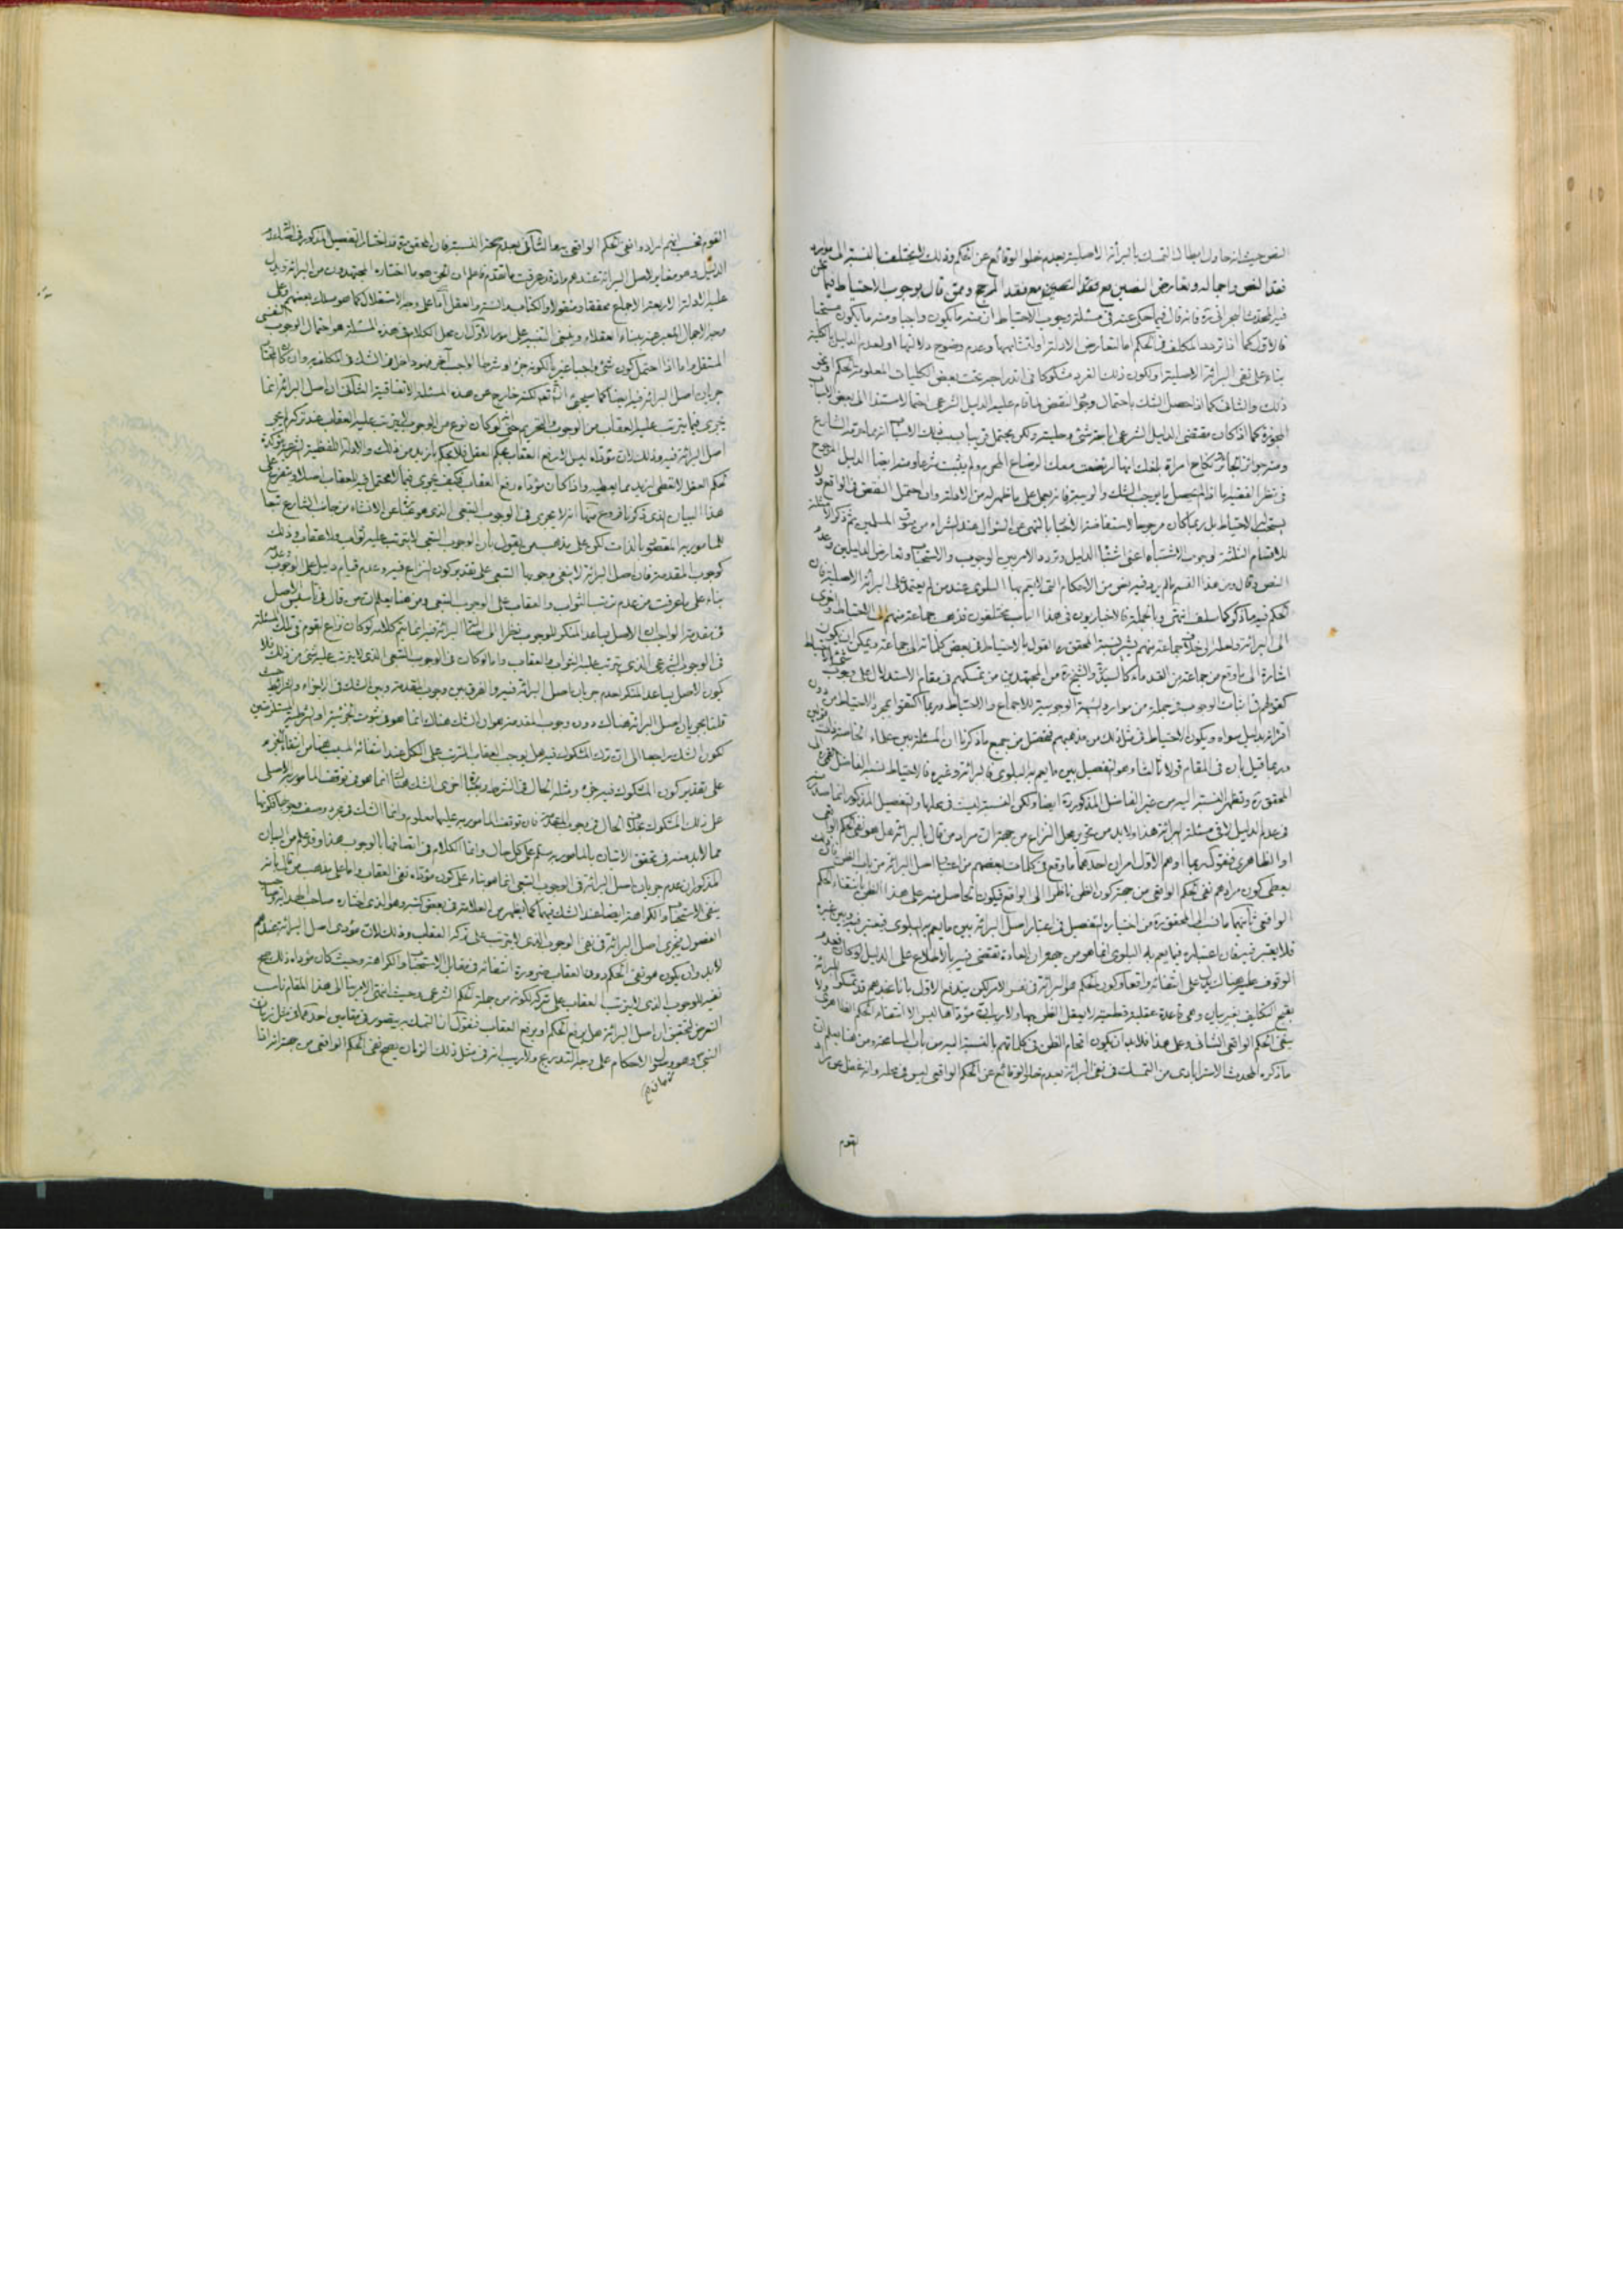 النص حيث انه حاول ابطال التمسك بالبرائة الاصلية بعدم خلو الوقائع عن الحكم وذلك لا يختلف بالنسبة الى موارد
فقد النص واجماله وتعارض النصين مع فقد المرجح وممن قال بوجوب الاحتياط فيما نحن
فيه المحدث البحراني ره فانه قال فيما حكى عنه في مسئلة وجوب الاحتياط ان منه ما يكون واجبا ومنه ما يكون مستحبا
فالاول كما اذا تردد المكلف في الحكم اما لتعارض الادلة او لتشابهها وعدم وضوح دلالتها او لعدم الدليل بالكلية
بناء على نفي البرائة الاصلية او لكون ذلك الفرد مشكوكا في اندراجه تحت بعض الكليات المعلومة الحكم او نحو
ذلك والثاني كما اذا حصل الشك باحتمال وجود النقيض لما قام عليه الدليل الشرعي احتمالا مستندا الى بعض الاسباب
المجوزة كما اذا كان مقتضى الدليل الشرعي اباحة شئ وحليته ولكن يحتمل قريبا بسبب تلك الاسباب انه مما حرمه الشارع
ومنه جوائز الجائر ونكاح امراة بلغك انها ارتضعت معك الرضاع المحرم ولم يثبت شرعا ومنه ايضا الدليل المرجوح
في نظر الفقيه اما اذا لم يحصل ما يوجب الشك والريبة فانه يعمل على ما ظهر له من الادلة وان احتمل النقيض في الواقع ولا
يستحب الاحتياط بل ربما كان مرجوحا لاستفاضة الاخبار بالنهي عن السؤال عند الشراء من سوق المسلمين ثم ذكر الامثلة
للاقسام الثلثة لوجوب الاشتباه اعني اشتباه الدليل وتردده الامر بين الوجوب والاستحباب وتعارض الدليلين وعدم
النص وقال ومن هذا القسم ما لم يرد فيه نص من الاحكام التي لا يعم بها البلوى عند من لم يعتمد على البرائة الاصلية فان
الحكم فيه ما ذكر كما سلف انتهى وبالجملة فالاخباريون في هذا الباب مختلفون فذهب جماعة منهم الى الاحتياط واخرى
الى البرائة
اشارة الى ما وقع من جماعة من القدماء كالسيد والشيخ ره من المجتهدين من تمسكهم في مقام الاستدلال على وجوب
كقولهم في اثبات الوجوب في جملة من موارد الشبهة الوجوبية للاجماع والاحتياط وربما اكتفوا بمجرد الاحتياط من دون
اقترانه بدليل سواه ويكون الاحتياط في مثل ذلك من مذهبهم فتحصل من جميع ما ذكرنا ان المسئلة بين علماء الخاصة ذات قولين
وربما قيل بان في المقام قولا ثالثا وهو التفصيل بين ما يعم به البلوى فالبرائة وغيره فالاحتياط نسبه الفاضل القمي الى
المحقق ره وتظهر النسبة اليه من غير الفاضل المذكور ره ايضا ولكن النسبة ليست في محلها والتفصيل المذكور انما صدر منه
في عدم الدليل لا في مسئلة البرائة هذا ولا بد من تحرير محل النزاع من جهة ان مراد من قال بالبرائة هل هو نفي الحكم الواقعي
او الظاهري فنقول ربما اوهم الاول امران احدهما ما وقع في كلمات بعضهم من اعتبار اصل البرائة من باب الظن فان ذلك
يعطي كون مرادهم نفي الحكم الواقعي من جهة كون الظن ناظرا الى الواقع فيكون الحاصل منه على هذا الظن بانتفاء الحكم
الواقعي ثانيهما ما نسب الى المحقق ره من اختياره التفصيل في اعتبار اصل البرائة بين ما يعم به البلوى فيعتبر فيه وبين غيره
فلا يعتبر فيه فان اعتباره فيما يعم به البلوى انما هو من جهة ان العادة تقتضي فيه بالاطلاع على الدليل لو كان فعدم
الوقوف عليه هناك يدل على انتفائه واقعا وكون الحكم هو البرائة في نفس الامر لكن يندفع الاول بانا نجدهم قد تمسكوا للبرائة
بقبح التكليف بغير بيان وهي قاعدة عقلية قطعية لا يعقل الظن بها ولا ريب ان مؤداها ليس الا انتفاء الحكم الظاهري ولا
ينفي الحكم الواقعي الشاني وعلى هذا فلا بد ان يكون اقحام الظن في كلماتهم بالنسبة اليه من باب المسامحة ومن هنا يعلم ان
ما ذكره المحدث الاسترابادي من التمسك في نفي البرائة بعدم خلو الوقائع عن الحكم الواقعي ليس في محله وانه غفل عن مراد
القوم
القوم فحسب انهم ارادوا نفي الحكم الواقعي بها الثاني بعدم صحة النسبة فان المحقق ره قد اختار التفصيل المذكور في
الدليل وهو مغاير لاصل البرائة عندهم واذ قد عرفت ما تقدم فاعلم ان الحق هو ما اختاره المجتهدون من البرائة ويدل
عليه الادلة الاربعة الاجماع محققا ومنقولا والكتاب والسنة والعقل اما على وجه الاستقلال كما هو مسلك بعضهم وعلى
وجه الاجمال المعبر عنه ببناء العقلاء وينبغي التنبيه على امور الاول ان محل الكلام في هذه المسئلة هو احتمال الوجوب النفسي
المستقل واما اذا احتمل كون شئ واجبا لكونه جزء او شرطا لواجب آخر فهو داخل في الشك في المكلف به وان كان المختار
جريان اصل البرائة فيه ايضا كما سيجئ انشاء الله تعالى لكنه خارج عن هذه المسئلة الاتفاقية الثاني ان اصل البرائة انما
يجري فيما يترتب عليه العقاب من الوجوب والتحريم حتى لو كان نوع من الوجوب لا يترتب عليه العقاب عند تركه لم يجر
اصل البرائة فيه وذلك لان مؤداه ليس الا رفع العقاب بحكم العقل فلا يحكم بازيد من ذلك والادلة اللفظية الشرعية مؤكدة
لحكم العقل لا تعطي ازيد مما يعطيه واذا كان مؤداه رفع العقاب فكيف يجري فيما لا يحتمل فيه العقاب اصلا ويتفرع على
هذا البيان الذي ذكرنا فروع منها انه لا يجري في الوجوب التبعي الذي هو نشأ عن الانشاء من جانب الشارع تبعا
للمامور به المقصود بالذات لكن على مذهب من يقول بان الوجوب التبعي لا يترتب عليه ثواب ولا عقاب وذلك
كوجوب المقدمة فان اصل البرائة لا ينفي وجوبها التبعي على تقدير كون النزاع فيه وعدم قيام دليل على الوجوب وعدمه
بناء على ما عرفت من عدم ترتب الثواب والعقاب على الوجوب التبعي ومن هنا يعلم ان من قال في تأسيس الاصل
في مقدمة الواجب ان الاصل يساعد المنكر للوجوب نظرا الى اصالة البرائة فيه انما يتم كلامه لو كان نزاع القوم في تلك المسئلة
في الوجوب الشرعي الذي يترتب عليه الثواب والعقاب واما لو كان في الوجوب التبعي الذي لا يترتب عليه شئ من ذلك فلا
يكون الاصل يساعد المنكر لعدم جريان اصل البرائة فيه والفرق بين وجوب المقدمة وبين الشك في الاجزاء والشرائط حيث
قلنا بجريان اصل البرائة هناك دون وجوب المقدمة هو ان الشك هناك انما هو في ثبوت الجزئية او الشرطية المستلزمتين
لكون الشك راجعا الى ان ترك المشكوك فيه هل يوجب العقاب المترتب على الكل عند انتفائه المسبب هنا من انتفاء الجزء
على تقدير كون المشكوك فيه جزء ومثله الحال في الشرط وبعبارة اخرى الشك هناك انما هو في توقف المامور به الاصلي
على ذلك المشكوك بخلاف الحال في وجوب المقدمة فان توقف المامور به عليها معلوم وانما الشك في مجرد وصف وجوبها لكونها
مما لابد منه في تحقق الاتيان بالمامور به مسلم على كل حال وانما الكلام في اتصافها بالوجوب هذا وقد علم من البيان
المذكور ان عدم جريان اصل البرائة في الوجوب التبعي انما هو بناء على كون مؤداه نفي العقاب واما على مذهب من قال بانه
ينفي الاستحباب والكراهة ايضا عند الشك فيهما كما يظهر من العلامة في بعض كتبه وهو الذي اختاره صاحب
الفصول فيجري اصل البرائة في نفي الوجوب الذي لا يترتب على تركه العقاب وذلك لان مؤدى اصل البرائة عندهم
لابد وان يكون هو نفي الحكم دون العقاب ضرورة انتفائه في مقابل الاستحباب والكراهة وحيث كان مؤداه ذلك صح
نفيه للوجوب الذي لا يترتب العقاب على تركه لكونه من جملة الحكم الشرعي وحيث انتهى الامر بنا الى هذا المقام ناسب
التعرض لتحقيق ان اصل البرائة هل يرفع الحكم او يرفع العقاب فنقول ان التمسك به يتصور في مقامين احدهما في مثل زمان
النبي ص وهو وصول الاحكام على وجه التدريج ولا ريب انه في مثل ذلك الزمان يصح نفي الحكم الواقعي من جهة انه اذا